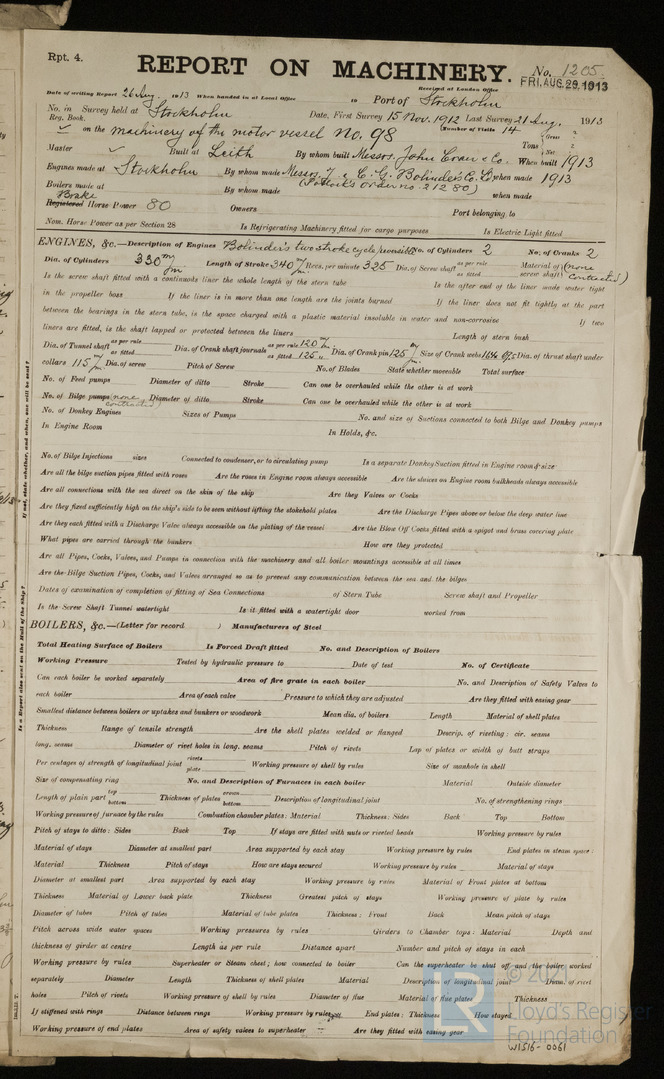 Rpt. 4.
REPORT ON MACHINERY.
No. 1205
Received at London Office
FRI. AUG. 29. 1913
Date of writing Report 26 Aug. 1913 When handed in at Local Office 10 Port of Stockholm
No. in Survey held at Stockholm Date, First Survey 15 Nov. 1912 Last Survey 21 Aug. 1913
Reg. Book.
Number of Visits 14
on the machinery of the motor vessel No. 98
Tons Gross Net
Master Built at Leith By whom built Messrs. John Cran & Co. When built 1913
Engines made at Stockholm By whom made Messrs J. & C. G. Bolinder's Co. Ld when made 1913
Boilers made at By whom made (Works order no. 21280) when made
Brake
Registered Horse Power 80 Owners Port belonging to
Nom. Horse Power as per Section 28 Is Refrigerating Machinery fitted for cargo purposes Is Electric Light fitted
ENGINES, &c.—Description of Engines Bolinder's two stroke cycle reversible No. of Cylinders 2 No. of Cranks 2
Dia. of Cylinders 330 m/m Length of Stroke 340 m/m Revs. per minute 325 Dia. of Screw shaft as per rule as fitted Material of screw shaft (none contracted)
Is the screw shaft fitted with a continuous liner the whole length of the stern tube Is the after end of the liner made water tight
in the propeller boss If the liner is in more than one length are the joints burned If the liner does not fit tightly at the part
between the bearings in the stern tube, is the space charged with a plastic material insoluble in water and non-corrosive If two
liners are fitted, is the shaft lapped or protected between the liners Length of stern bush
Dia. of Tunnel shaft as per rule as fitted Dia. of Crank shaft journals as per rule 120 as fitted 125 Dia. of Crank pin 125 m/m Size of Crank webs Dia. of thrust shaft under
collars 115 m/m Dia. of screw Pitch of Screw No. of Blades State whether moveable Total surface
No. of Feed pumps Diameter of ditto Stroke Can one be overhauled while the other is at work
No. of Bilge pumps (none contracted) Diameter of ditto Stroke Can one be overhauled while the other is at work
No. of Donkey Engines Sizes of Pumps No. and size of Suctions connected to both Bilge and Donkey pumps
In Engine Room In Holds, &c.
No. of Bilge Injections sizes Connected to condenser, or to circulating pump Is a separate Donkey Suction fitted in Engine room & size
Are all the bilge suction pipes fitted with roses Are the roses in Engine room always accessible Are the sluices on Engine room bulkheads always accessible
Are all connections with the sea direct on the skin of the ship Are they Valves or Cocks
Are they fixed sufficiently high on the ship's side to be seen without lifting the stokehold plates Are the Discharge Pipes above or below the deep water line
Are they each fitted with a Discharge Valve always accessible on the plating of the vessel Are the Blow Off Cocks fitted with a spigot and brass covering plate
What pipes are carried through the bunkers How are they protected
Are all Pipes, Cocks, Valves, and Pumps in connection with the machinery and all boiler mountings accessible at all times
Are the Bilge Suction Pipes, Cocks, and Valves arranged so as to prevent any communication between the sea and the bilges
Dates of examination of completion of fitting of Sea Connections of Stern Tube Screw shaft and Propeller
Is the Screw Shaft Tunnel watertight Is it fitted with a watertight door worked from
BOILERS, &c.—(Letter for record ) Manufacturers of Steel
Total Heating Surface of Boilers Is Forced Draft fitted No. and Description of Boilers
Working Pressure Tested by hydraulic pressure to Date of test No. of Certificate
Can each boiler be worked separately Area of fire grate in each boiler No. and Description of Safety Valves to
each boiler Area of each valve Pressure to which they are adjusted Are they fitted with easing gear
Smallest distance between boilers or uptakes and bunkers or woodwork Mean dia. of boilers Length Material of shell plates
Thickness Range of tensile strength Are the shell plates welded or flanged Descrip. of riveting: cir. seams
long. seams Diameter of rivet holes in long. seams Pitch of rivets Lap of plates or width of butt straps
Per centages of strength of longitudinal joint rivets plate Working pressure of shell by rules Size of manhole in shell
Size of compensating ring No. and Description of Furnaces in each boiler Material Outside diameter
Length of plain part top bottom Thickness of plates crown bottom Description of longitudinal joint No. of strengthening rings
Working pressure of furnace by the rules Combustion chamber plates: Material Thickness: Sides Back Top Bottom
Pitch of stays to ditto: Sides Back Top If stays are fitted with nuts or riveted heads Working pressure by rules
Material of stays Diameter at smallest part Area supported by each stay Working pressure by rules End plates in steam space:
Material Thickness Pitch of stays How are stays secured Working pressure by rules Material of stays
Diameter at smallest part Area supported by each stay Working pressure by rules Material of Front plates at bottom
Thickness Material of Lower back plate Thickness Greatest pitch of stays Working pressure of plate by rules
Diameter of tubes Pitch of tubes Material of tube plates Thickness: Front Back Mean pitch of stays
Pitch across wide water spaces Working pressures by rules Girders to Chamber tops: Material Depth and
thickness of girder at centre Length as per rule Distance apart Number and pitch of stays in each
Working pressure by rules Superheater or Steam chest; how connected to boiler Can the superheater be shut off and the boiler worked
separately Diameter Length Thickness of shell plates Material Description of longitudinal joint Diam. of rivet
holes Pitch of rivets Working pressure of shell by rules Diameter of flue Material of flue plates Thickness
If stiffened with rings Distance between rings Working pressure by rules End plates: Thickness How stayed
Working pressure of end plates Area of safety valves to superheater Are they fitted with easing gear
If not, state whether, and when, one will be sent?
Is a Report also sent on the Hull of the ship?
LR
Lloyd's Register
Foundation
W1516-0061